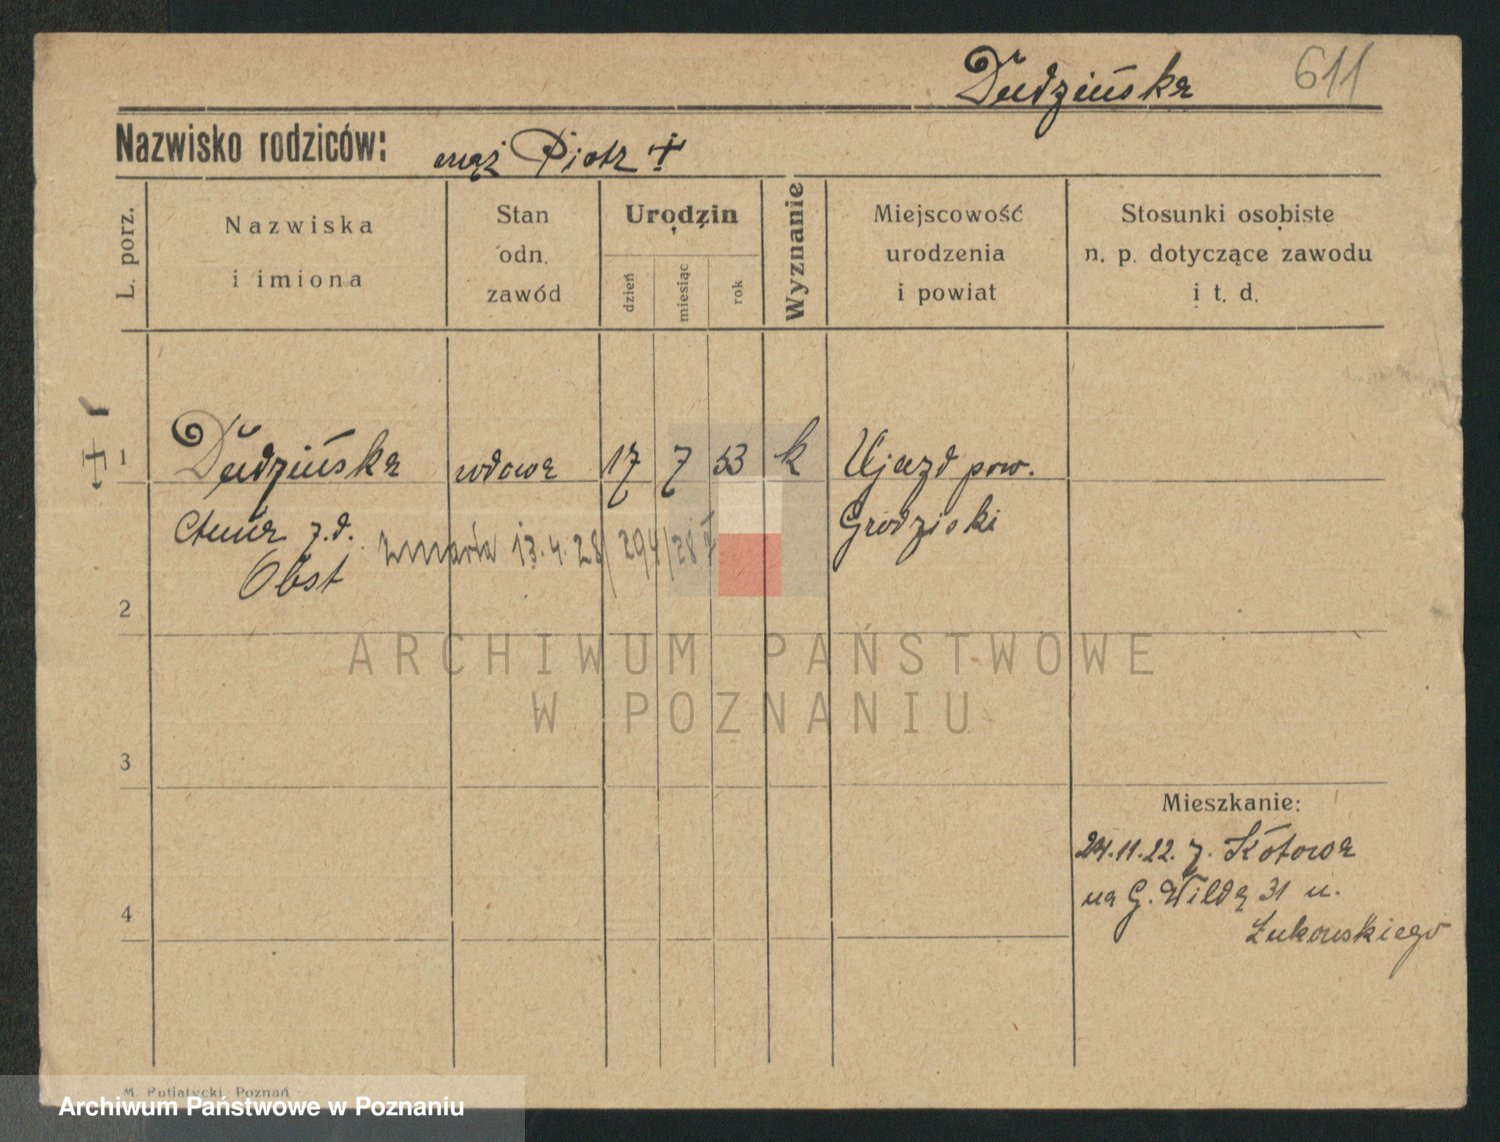 Dudzińska 611
Nazwisko rodziców: mąż Piotr
L. porz.
Nazwiska
i imiona
Stan
odn.
zawód
Urodzin
dzień
miesiąc
rok
Wyznanie
Miejscowość
urodzenia
i powiat
Stosunki osobiste
n. p. dotyczące zawodu
i t. d.
1 Dudzińska wdowa 17 7 53 k Ujazd pow.
Anna z.d. Grodziski
zmarła 13.4.28/294/28
Obst
2
3
4
ARCHIWUM PAŃSTWOWE
W POZNANIU
Mieszkanie:
24.11.22. z. Kotowa
na G. Wildę 31 u.
Łukowskiego
M. Putiatycki, Poznań
Archiwum Państwowe w Poznaniu